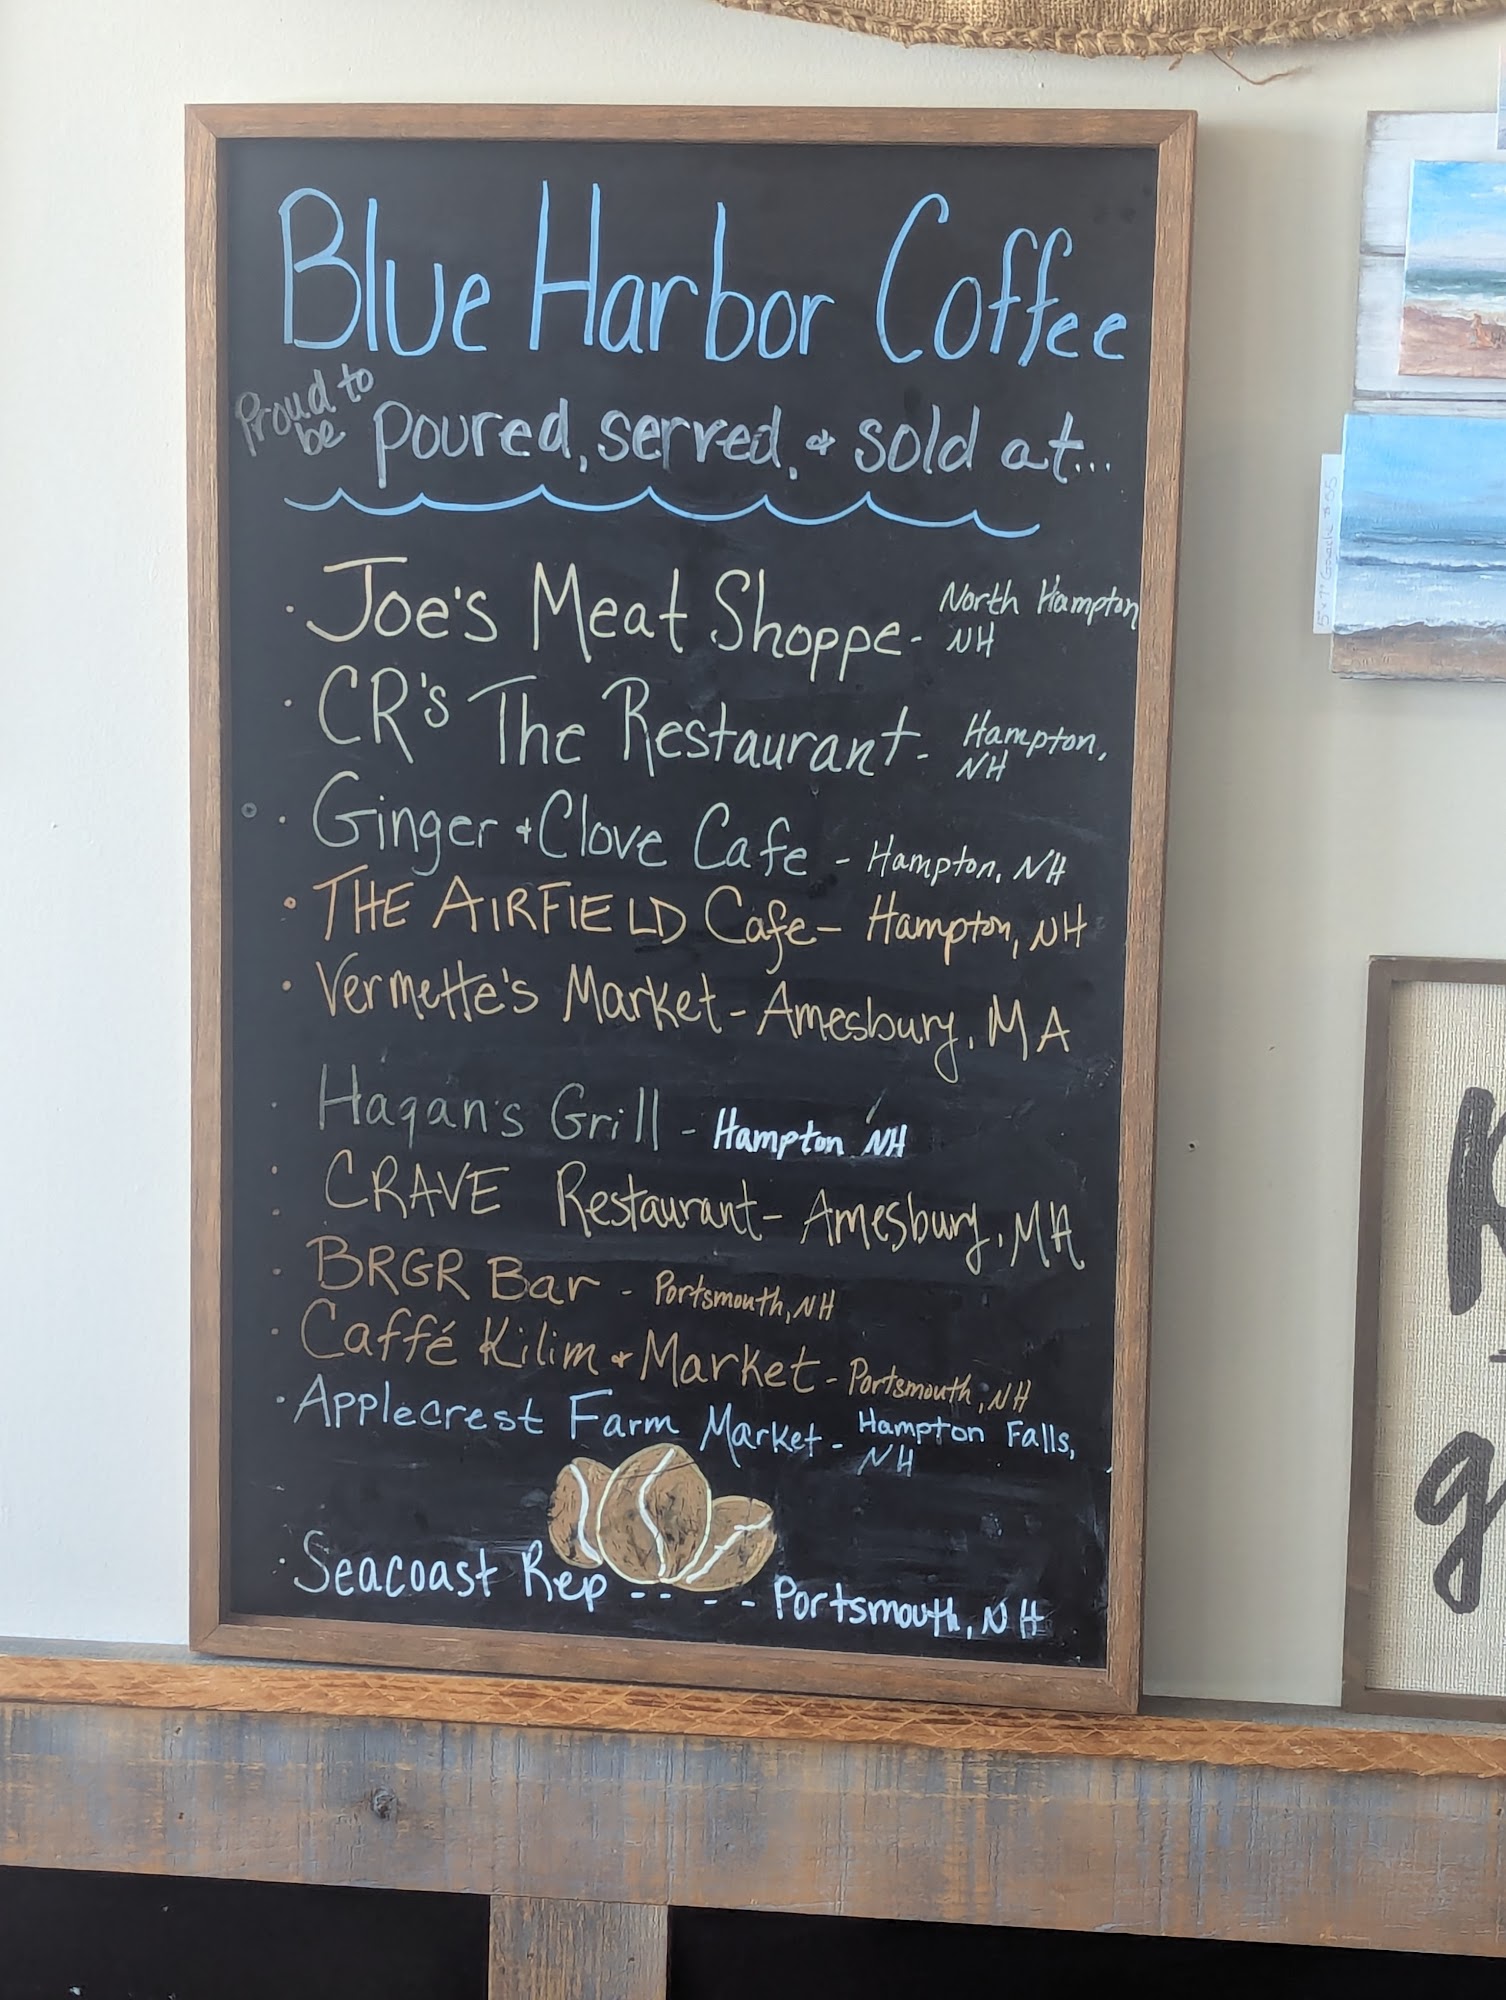 Blue Harbor Coffee
Proud to be poured, served, & sold at...
· Joe's Meat Shoppe - North Hampton NH
· CR's The Restaurant - Hampton, NH
· Ginger & Clove Cafe - Hampton, NH
· THE AIRFIELD Cafe - Hampton, NH
· Vermette's Market - Amesbury, MA
· Hagan's Grill - Hampton NH
· CRAVE Restaurant - Amesbury, MA
· BRGR Bar - Portsmouth, NH
· Caffé Kilim & Market - Portsmouth, NH
· Applecrest Farm Market - Hampton Falls, NH
· Seacoast Rep - - - - Portsmouth, NH